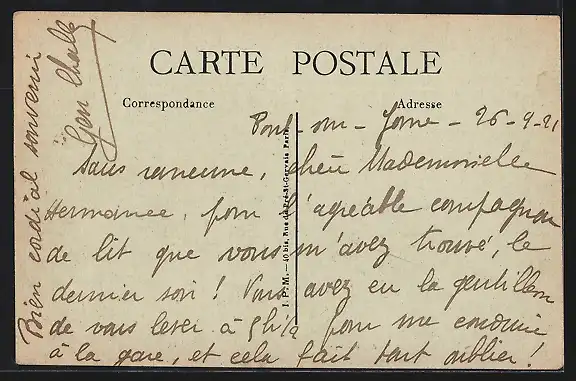 CARTE POSTALE
Correspondance
Adresse
Pont-sur-Yonne - 26-9-21
Sans rancune, chère Mademoiselle
Hermance, pour l'agréable compagnon
de lit que vous m'avez trouvé, le
dernier soir ! Vous avez eu la gentillesse
de vous lever à 5h 1/2 pour me conduire
à la gare, et cela fait tout oublier !
Bien cordial souvenir
I. P. M. — 40 bis, Rue du Pré-St-Gervais Paris